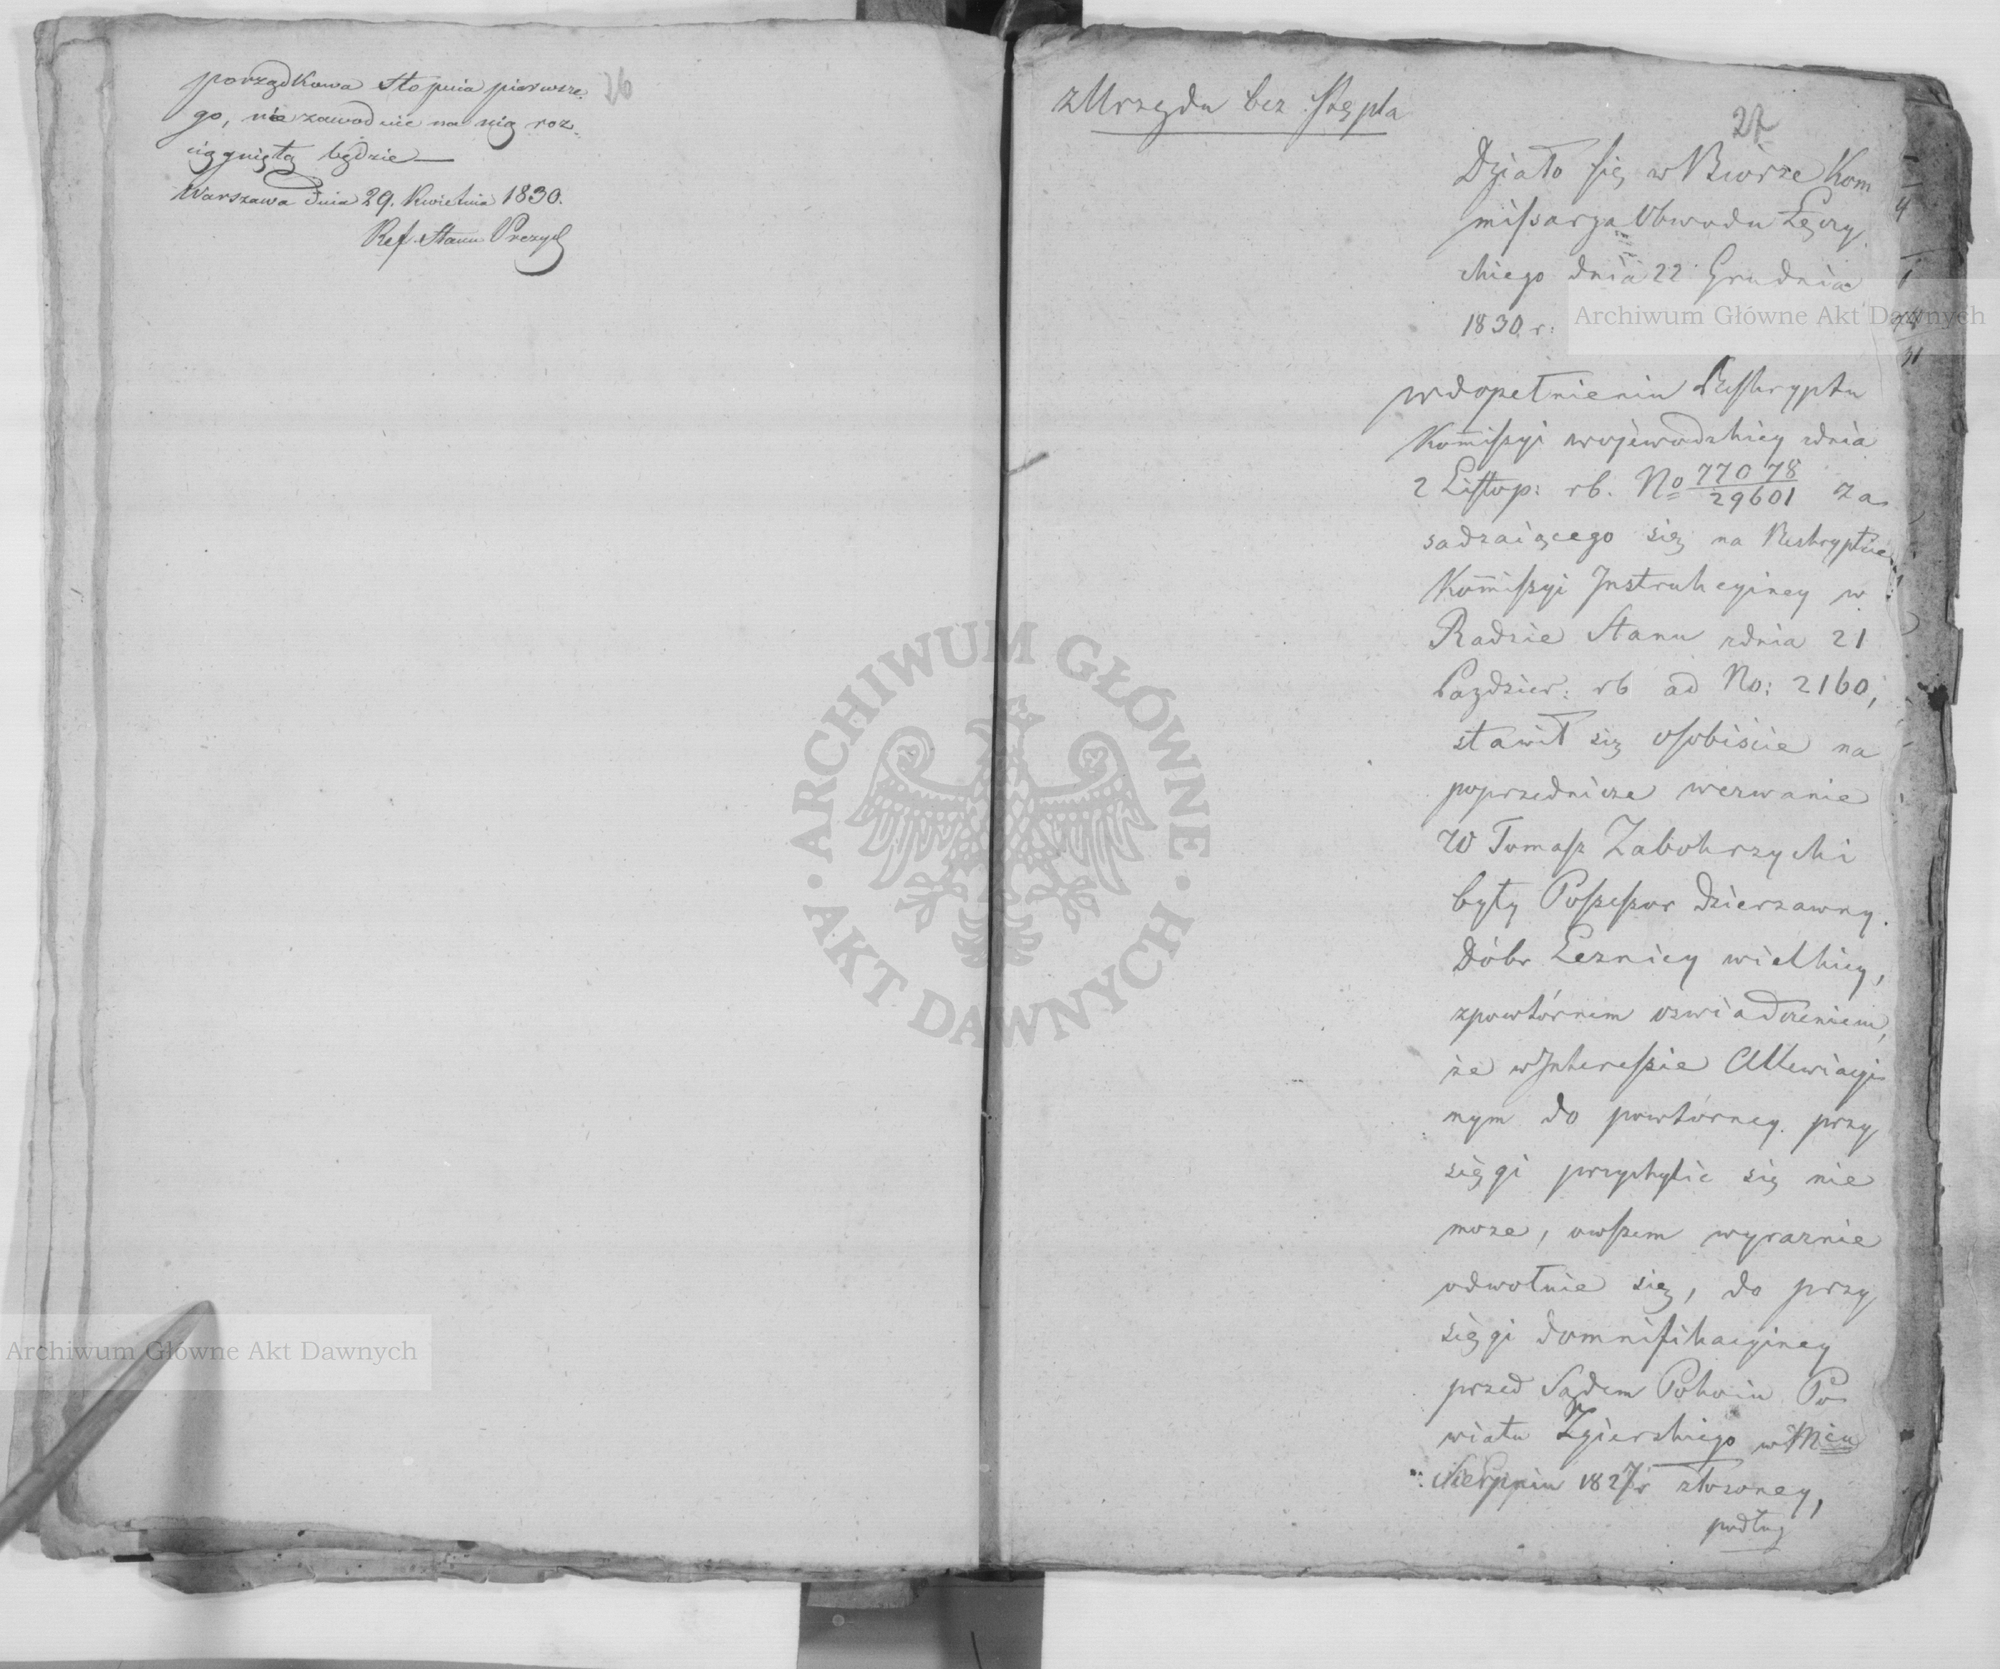 porządkowa Stopnia pierwsze-
go, niezawodnie na nią roz-
ciągniętą będzie —
Warszawa dnia 29. Kwietnia 1830.
Ref. Stanu
26
z Urzędu bez stępla
27
Działo się w Biórze Kom
missarza Obwodu Łęczy
ckiego dnia 22 Grudnia
1830 r:
w dopełnieniu Reskryptu
Kommissyi wojewodzkiey zdnia
2 Listop: rb. No 77078/29601 za
sadzaiącego się na Reskryptcie
Kommissyi Instrukcyiney w
Radzie Stanu zdnia 21
Pazdzier: rb ad No: 2160,
stawił się osobiscie na
poprzednicze wezwanie
W Tomasz Zabokrzycki
były Possessor dzierzawny
Dóbr Leznicy wielkiey,
zpowtórnem oswiadczeniem,
że w Interessie Allewiacyi
nym do powtórney przy
sięgi przychylić się nie
moze, owszem wyraznie
odwołuie się, do przy
sięgi domnifikacyiney
przed Sądem Pokoiu Po
wiatu Zgierskiego w Mcu
Sierpniu 1827 r złozoney,
podług
Archiwum Główne Akt Dawnych
Archiwum Główne Akt Dawnych
ARCHIWUM GŁÓWNE
AKT DAWNYCH